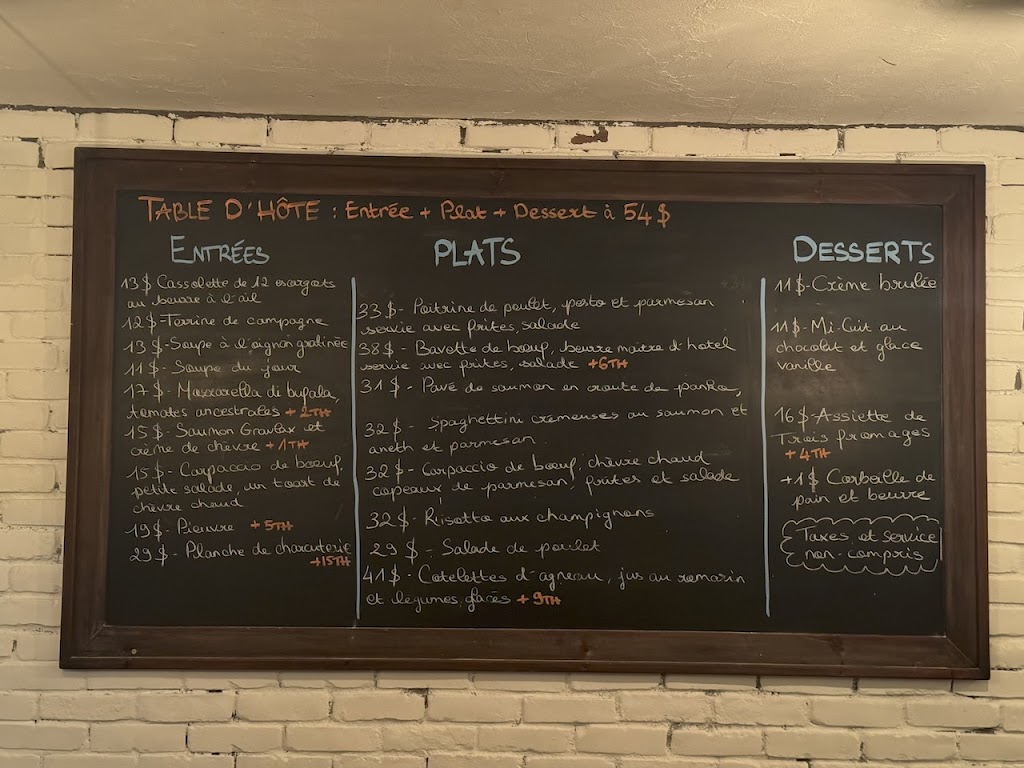 TABLE D'HÔTE : Entrée + Plat + Dessert à 54$
ENTRÉES
13$ Cassolette de 12 escargots
au beurre à l'ail
12$-Terrine de campagne
13$-Soupe à l'oignon gratinée
11$- Soupe du jour
17$- Mozzarella di bufala,
tomates ancestrales +2TH
15$- Saumon Gravlax et
crème de chèvre +1TH
15$- Carpaccio de bœuf,
petite salade, un toast de
chèvre chaud
19$- Pieuvre +5TH
29$- Planche de charcuterie
+15TH
PLATS
33$- Poitrine de poulet, pesto et parmesan
servie avec frites, salade
38$- Bavette de bœuf, beurre maître d'hotel
servie avec frites, salade +6TH
31$- Pavé de saumon en croute de panko,
32$- Spaghettini crémeuses au saumon et
aneth et parmesan
32$- Carpaccio de bœuf, chèvre chaud
copeaux de parmesan, frites et salade
32$- Risotto aux champignons
29$- Salade de poulet
41$- Cotelettes d'agneau, jus au romarin
et légumes glacés +9TH
DESSERTS
11$-Crème brulée
11$-Mi-Cuit au
chocolat et glace
vanille
16$-Assiette de
Trois fromages
+4TH
+1$ Corbeille de
pain et beurre
Taxes et service
non-compris